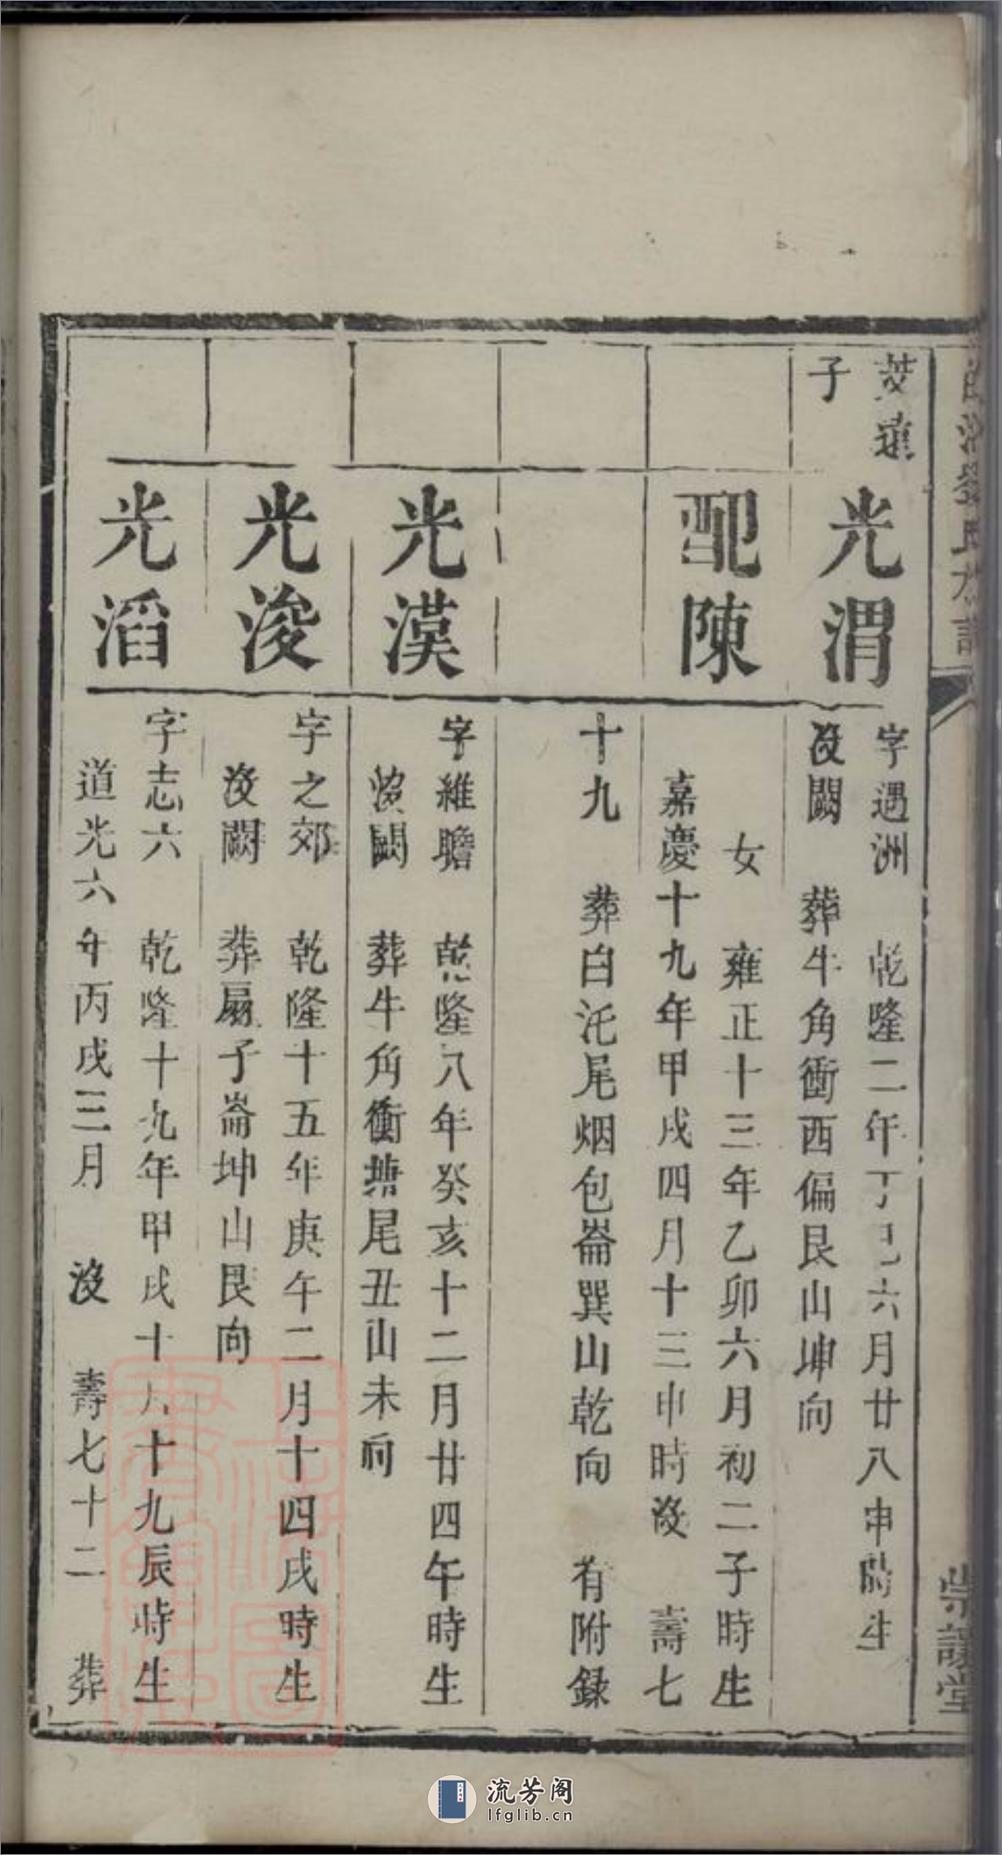 子
光渭
字遇洲　乾隆二年丁巳六月廿八申時生
沒闕　葬牛角衝西偏艮山坤向
配陳
女　雍正十三年乙卯六月初二子時生
嘉慶十九年甲戌四月十三申時沒　壽七
十九　葬白沱尾烟包崙巽山乾向　有附錄
光漢
字維瞻　乾隆八年癸亥十二月廿四午時生
沒闕　葬牛角衝塘尾丑山未向
光浚
字之郊　乾隆十五年庚午二月十四戌時生
沒闕　葬扇子崙坤山艮向
光滔
字志六　乾隆十九年甲戌十月十九辰時生
道光六年丙戌三月　沒　壽七十二　葬
崇讓堂
流芳阁
lfglib.cn